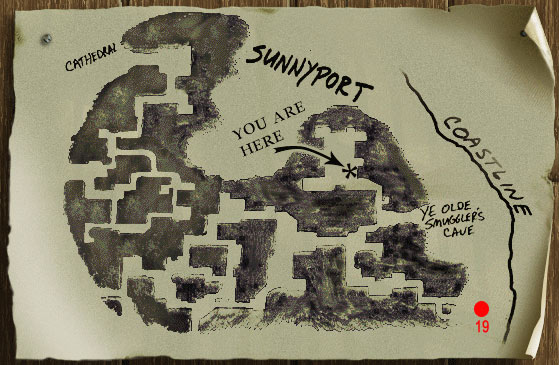 CATHEDRAL
SUNNYPORT
YOU ARE
HERE
*
COASTLINE
YE OLDE
SMUGGLER'S
CAVE
19